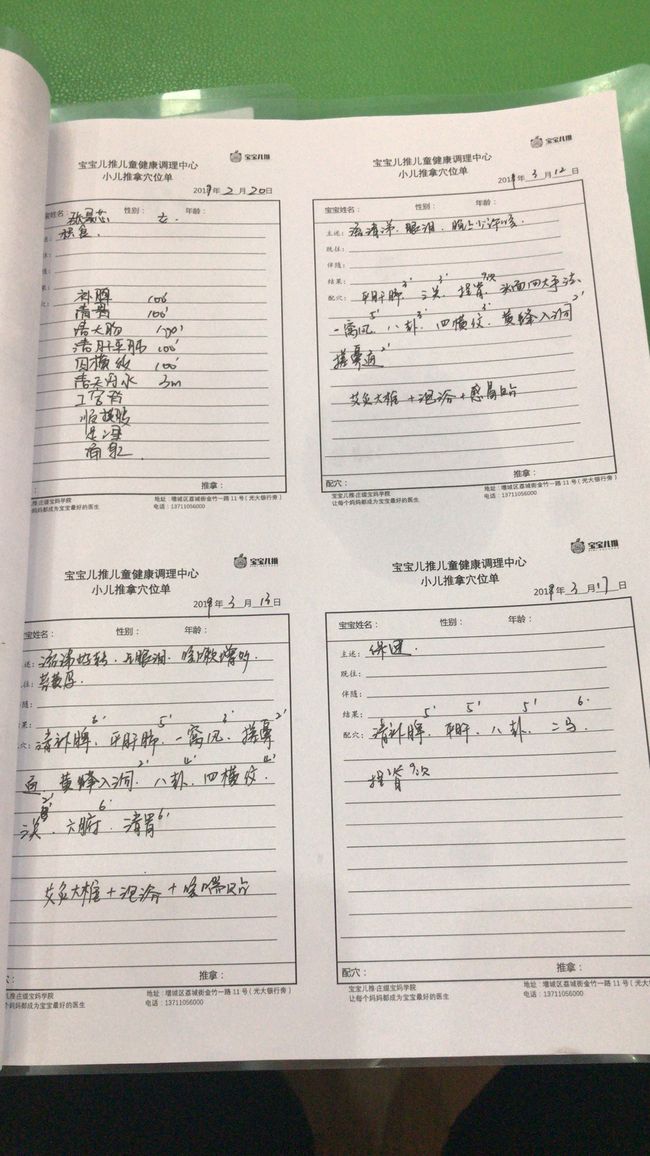 宝宝儿推
宝宝儿推儿童健康调理中心
小儿推拿穴位单
2019年2月20日
宝姓名： 性别：女 年龄：
积食
补脾 100'
清胃 100'
清大肠 100'
清肝平肺 100'
四横纹 100'
清天河水 3m
顺揉腹
推拿：
儿推·庄缇宝妈学院
妈妈都成为宝宝最好的医生
地址：增城区荔城街金竹一路11号（光大银行旁）
电话：13711056000
宝宝儿推
宝宝儿推儿童健康调理中心
小儿推拿穴位单
2019年3月12日
宝宝姓名： 性别： 年龄：
主述：流清涕、眼泪、晚上少许咳
既往：
伴随：
结果：
配穴：平肝肺3' 二关3' 捏脊9次 头面四大手法
一窝风5' 八卦3' 四横纹3' 黄蜂入洞2'
搓鼻通2'
艾灸大椎+泡浴+感冒贴
配穴： 推拿：
宝宝儿推·庄缇宝妈学院
让每个妈妈都成为宝宝最好的医生
地址：增城区荔城街金竹一路11号（光大银行旁）
电话：13711056000
宝宝儿推
宝宝儿推儿童健康调理中心
小儿推拿穴位单
2019年3月13日
宝姓名： 性别： 年龄：
述：流涕好转、无眼泪、咳嗽增多、
往：苔黄厚
随：
果：
穴：清补脾6' 平肝肺5' 一窝风3' 搓鼻2'
通、黄蜂入洞2' 八卦4' 四横纹4'
六腑6' 清胃6'
艾灸大椎+泡浴+咳喘贴
穴： 推拿：
儿推·庄缇宝妈学院
个妈妈都成为宝宝最好的医生
地址：增城区荔城街金竹一路11号（光大银行旁）
电话：13711056000
宝宝儿推
宝宝儿推儿童健康调理中心
小儿推拿穴位单
2019年3月17日
宝宝姓名： 性别： 年龄：
主述：保健
既往：
伴随：
结果：
配穴：清补脾5' 平肝5' 八卦5' 二马6'
捏脊9次
配穴： 推拿：
宝宝儿推·庄缇宝妈学院
让每个妈妈都成为宝宝最好的医生
地址：增城区荔城街金竹一路11号（光大银行旁）
电话：13711056000